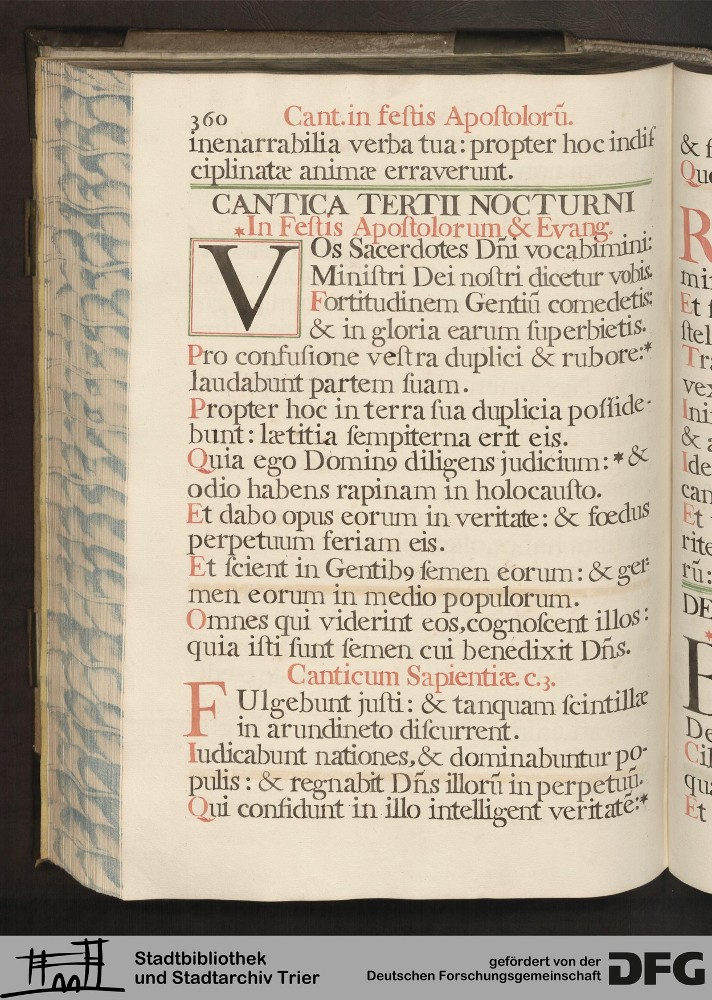 360 Cant. in feſtis Apoſtolorũ.
inenarrabilia verba tua: propter hoc indiſ
ciplinatæ animæ erraverunt.
CANTICA TERTII NOCTURNI
*In Feſtis Apoſtolorum & Evang.
VOs Sacerdotes Dñi vocabimini:
Miniſtri Dei noſtri dicetur vobis.
Fortitudinem Gentiũ comedetis:
& in gloria earum ſuperbietis.
Pro confuſione veſtra duplici & rubore:*
laudabunt partem ſuam.
Propter hoc in terra ſua duplicia poſſide-
bunt: lætitia ſempiterna erit eis.
Quia ego Domin9 diligens judicium: * &
odio habens rapinam in holocauſto.
Et dabo opus eorum in veritate: & fœdus
perpetuum feriam eis.
Et ſcient in Gentib9 ſemen eorum: & ger-
men eorum in medio populorum.
Omnes qui viderint eos, cognoſcent illos:
quia iſti ſunt ſemen cui benedixit Dñs.
Canticum Sapientiæ. c. 3.
FUlgebunt juſti: & tanquam ſcintillæ
in arundineto diſcurrent.
Iudicabunt nationes, & dominabuntur po-
pulis: & regnabit Dñs illorũ in perpetuũ.
Qui confidunt in illo intelligent veritatē:*
& f
Que
R
mi
Et f
ſtel
Tra
vex
Ini
& a
Ide
can
Et
rite
rũ:
DE
*
De
Cil
qua
Et
Stadtbibliothek
und Stadtarchiv Trier
gefördert von der
Deutschen Forschungsgemeinschaft
DFG